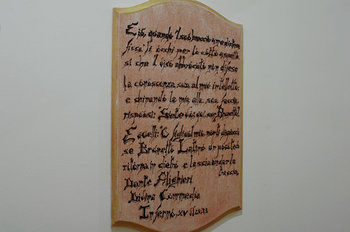 E io, quando 'l suo braccio a me distese,
ficcaï li occhi per lo cotto aspetto,
sì che 'l viso abbrusciato non difese
la conoscenza sua al mio intelletto;
e chinando la mia alla sua faccia,
rispuosi: Siete voi qui, ser Brunetto?
E quelli: O figliuol mio, non ti dispiaccia
se Brunetto Latino un poco teco
ritorna in dietro e lascia andar la
traccia.
Dante Alighieri
Divina Commedia
Inferno, XV